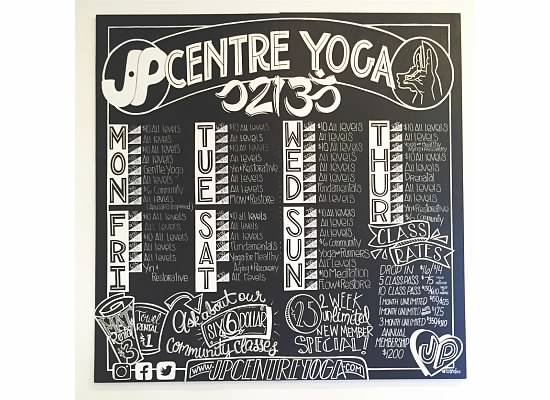 JP CENTRE YOGA
02130
MON
$10 All Levels
All Levels
$10 All Levels
All Levels
Gentle Yoga
All Levels
$6 Community
All Levels
TUE
$10 All Levels
All Levels
$10 All Levels
All Levels
Yin + Restorative
All Levels
All Levels
Flow + Restore
WED
$10 All Levels
All Levels
$10 All Levels
All Levels
All Levels
Fundamentals
All Levels
All Levels
THUR
$10 All Levels
All Levels
All Levels
Prenatal
All Levels
All Levels
Yin + Restorative
$6 Community
FRI
$10 All Levels
All Levels
$10 All Levels
All Levels
All Levels
Yin +
Restorative
SAT
$10 all levels
All Levels
All Levels
Fundamentals
Yoga for Healthy
Aging + Recovery
All Levels
SUN
$10 All Levels
All Levels
All Levels
$6 Community
Yoga for Runners
All Levels
$10 Meditation
Flow + Restore
CLASS
RATES
DROP IN $16/14
5 CLASS PASS $75
10 CLASS PASS
1 MONTH UNLIMITED
1 MONTH UNLIMITED $125
3 MONTH UNLIMITED
ANNUAL
MEMBERSHIP
$1200
$3
Towel
RENTAL
$1
Ask about our
SIX 6 DOLLAR
community classes
$25 2 WEEK
unlimited
NEW MEMBER
SPECIAL!
JP
WWW.JPCENTREYOGA.COM